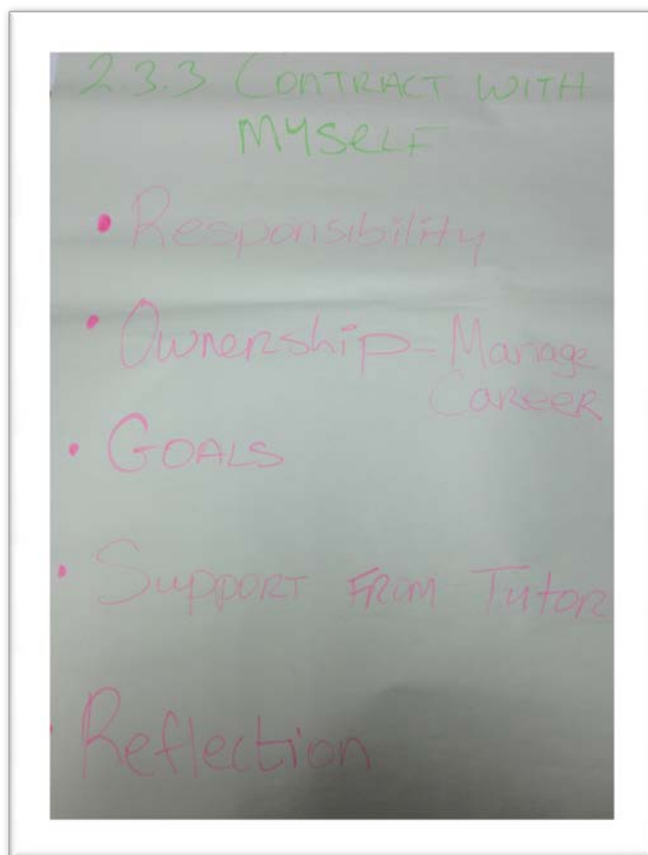 2.3.3 CONTRACT WITH
MYSELF
• Responsibility
• Ownership - Manage
Career
• GOALS
• Support From Tutor
• Reflection